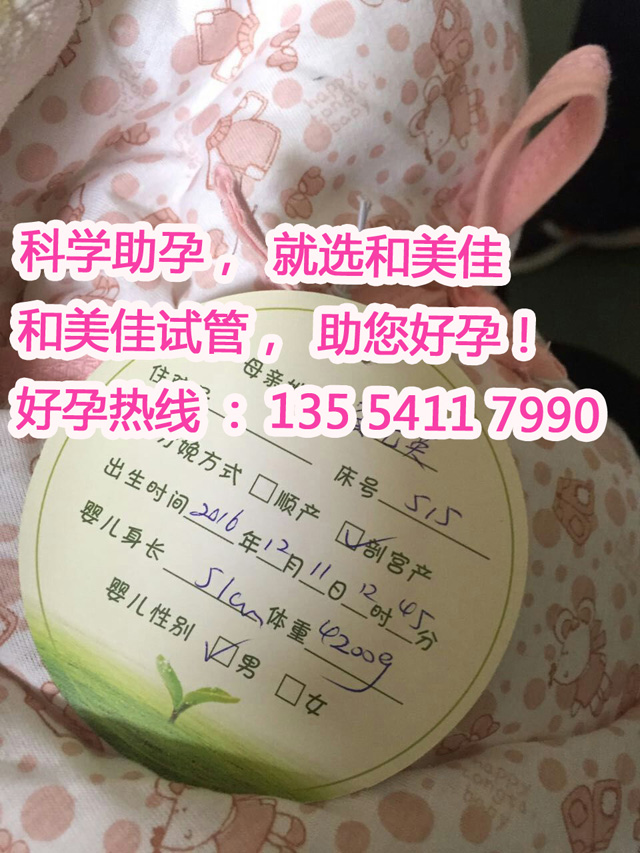 科学助孕， 就选和美佳
和美佳试管， 助您好孕！
好孕热线 ：135 5411 7990
母亲
住
床号 515
分娩方式 □顺产 ☑剖宫产
出生时间 2016年12月11日12时45分
婴儿身长 51cm 体重 4200g
婴儿性别 ☑男 □女